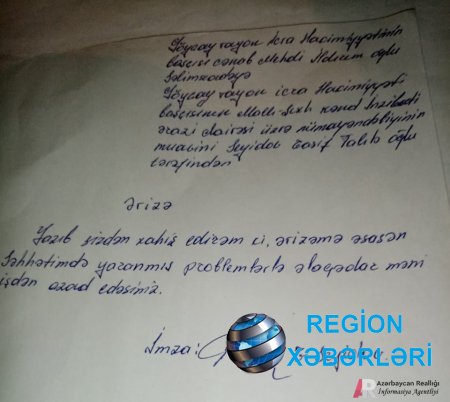 Göyçay rayon İcra Hacimiyyətinin
başçısı cənab Mehdi İldırım oğlu
Səlimzadəyə
Göyçay rayon icra Hacimiyyəti
başçısının Mallı-Şıxlı kənd İnzibati
ərazi dairəsi üzrə nümayəndəliyinin
müavini Seyidov Vasif Talıb oğlu
tərəfindən
Ərizə
Yazıb sizdən xahiş edirəm ki, ərizəmə əsasən
Səhhətimdə yaranmış problemlərlə əlaqədar məni
işdən azad edəsiniz.
İmza:
REGİON
XƏBƏRLƏRİ
Azərbaycan Reallığı
İnformasiya Agentliyi